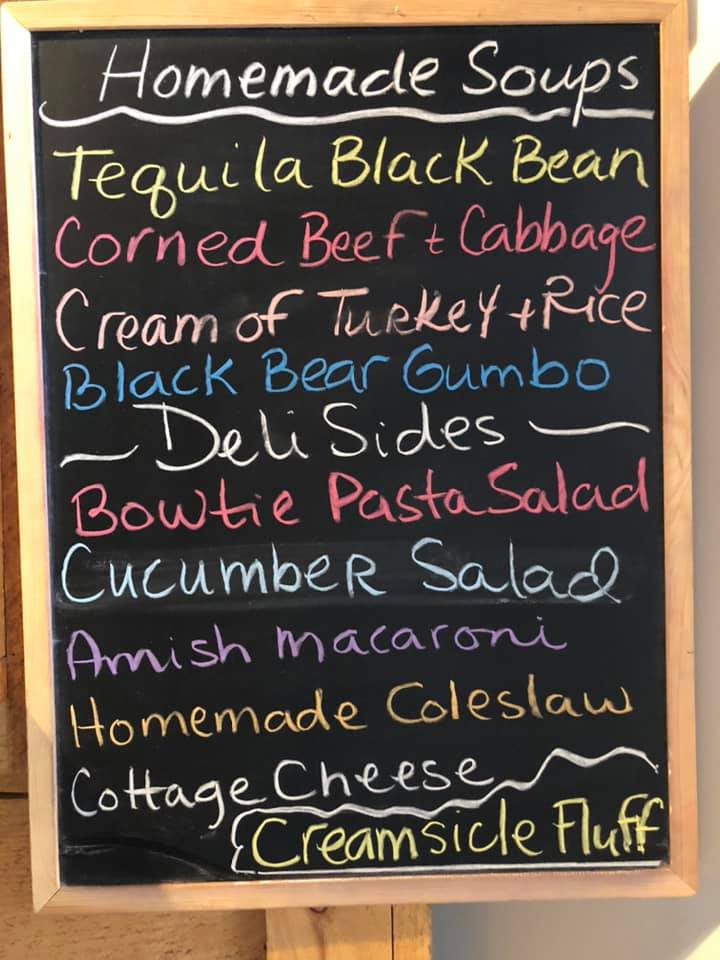 Homemade Soups
Tequila Black Bean
Corned Beef + Cabbage
Cream of Turkey + Rice
Black Bear Gumbo
Deli Sides
Bowtie Pasta Salad
Cucumber Salad
Amish Macaroni
Homemade Coleslaw
Cottage Cheese
Creamsicle Fluff